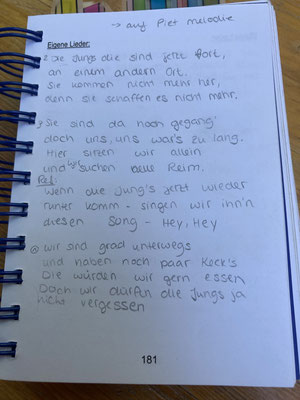 → auf Piet melodie
Eigene Lieder:
2 Die Jungs die sind jetzt fort,
an einem andern Ort.
Sie kommen nicht mehr her,
denn sie schaffen es nicht mehr.
3 Sie sind da noch gegang'
doch uns, uns war's zu lang.
Hier sitzen wir allein
und wir suchen neue Reim.
Ref.:
Wenn die Jung's jetzt wieder
runter komm - singen wir ihn'n
diesen Song - Hey, Hey
wir sind grad unterwegs
und haben noch paar Keck's
Die würden wir gern essen
Doch wir dürfen die Jungs ja
nicht vergessen
181